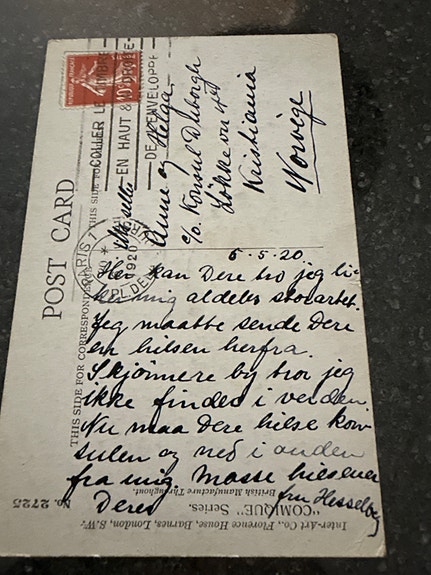 COLLER LE TIMBRE
EN HAUT & A DROITE
DE L'ENVELOPPE
10c
PARIS
1920
POST CARD
THIS SIDE FOR CORRESPONDENCE
THIS SIDE FOR
Anne og Helga
c/o. Konsul Dyborgh
Løkkevn 4
Kristiania
Norvège
5.5.20.
Her kan Dere tro jeg li-
ker mig aldeles storartet.
Jeg maatte sende Dere
en hilsen herfra.
Skjønnere by tror jeg
ikke findes i verden
Nu maa Dere hilse kon
sulen og ned i anden
fra mig. Masse hilsener
Deres
fru Hesselberg
Inter-Art Co., Florence House, Barnes, London, S.W.
"COMIQUE" Series.
British Manufacture Throughout.
No. 2725